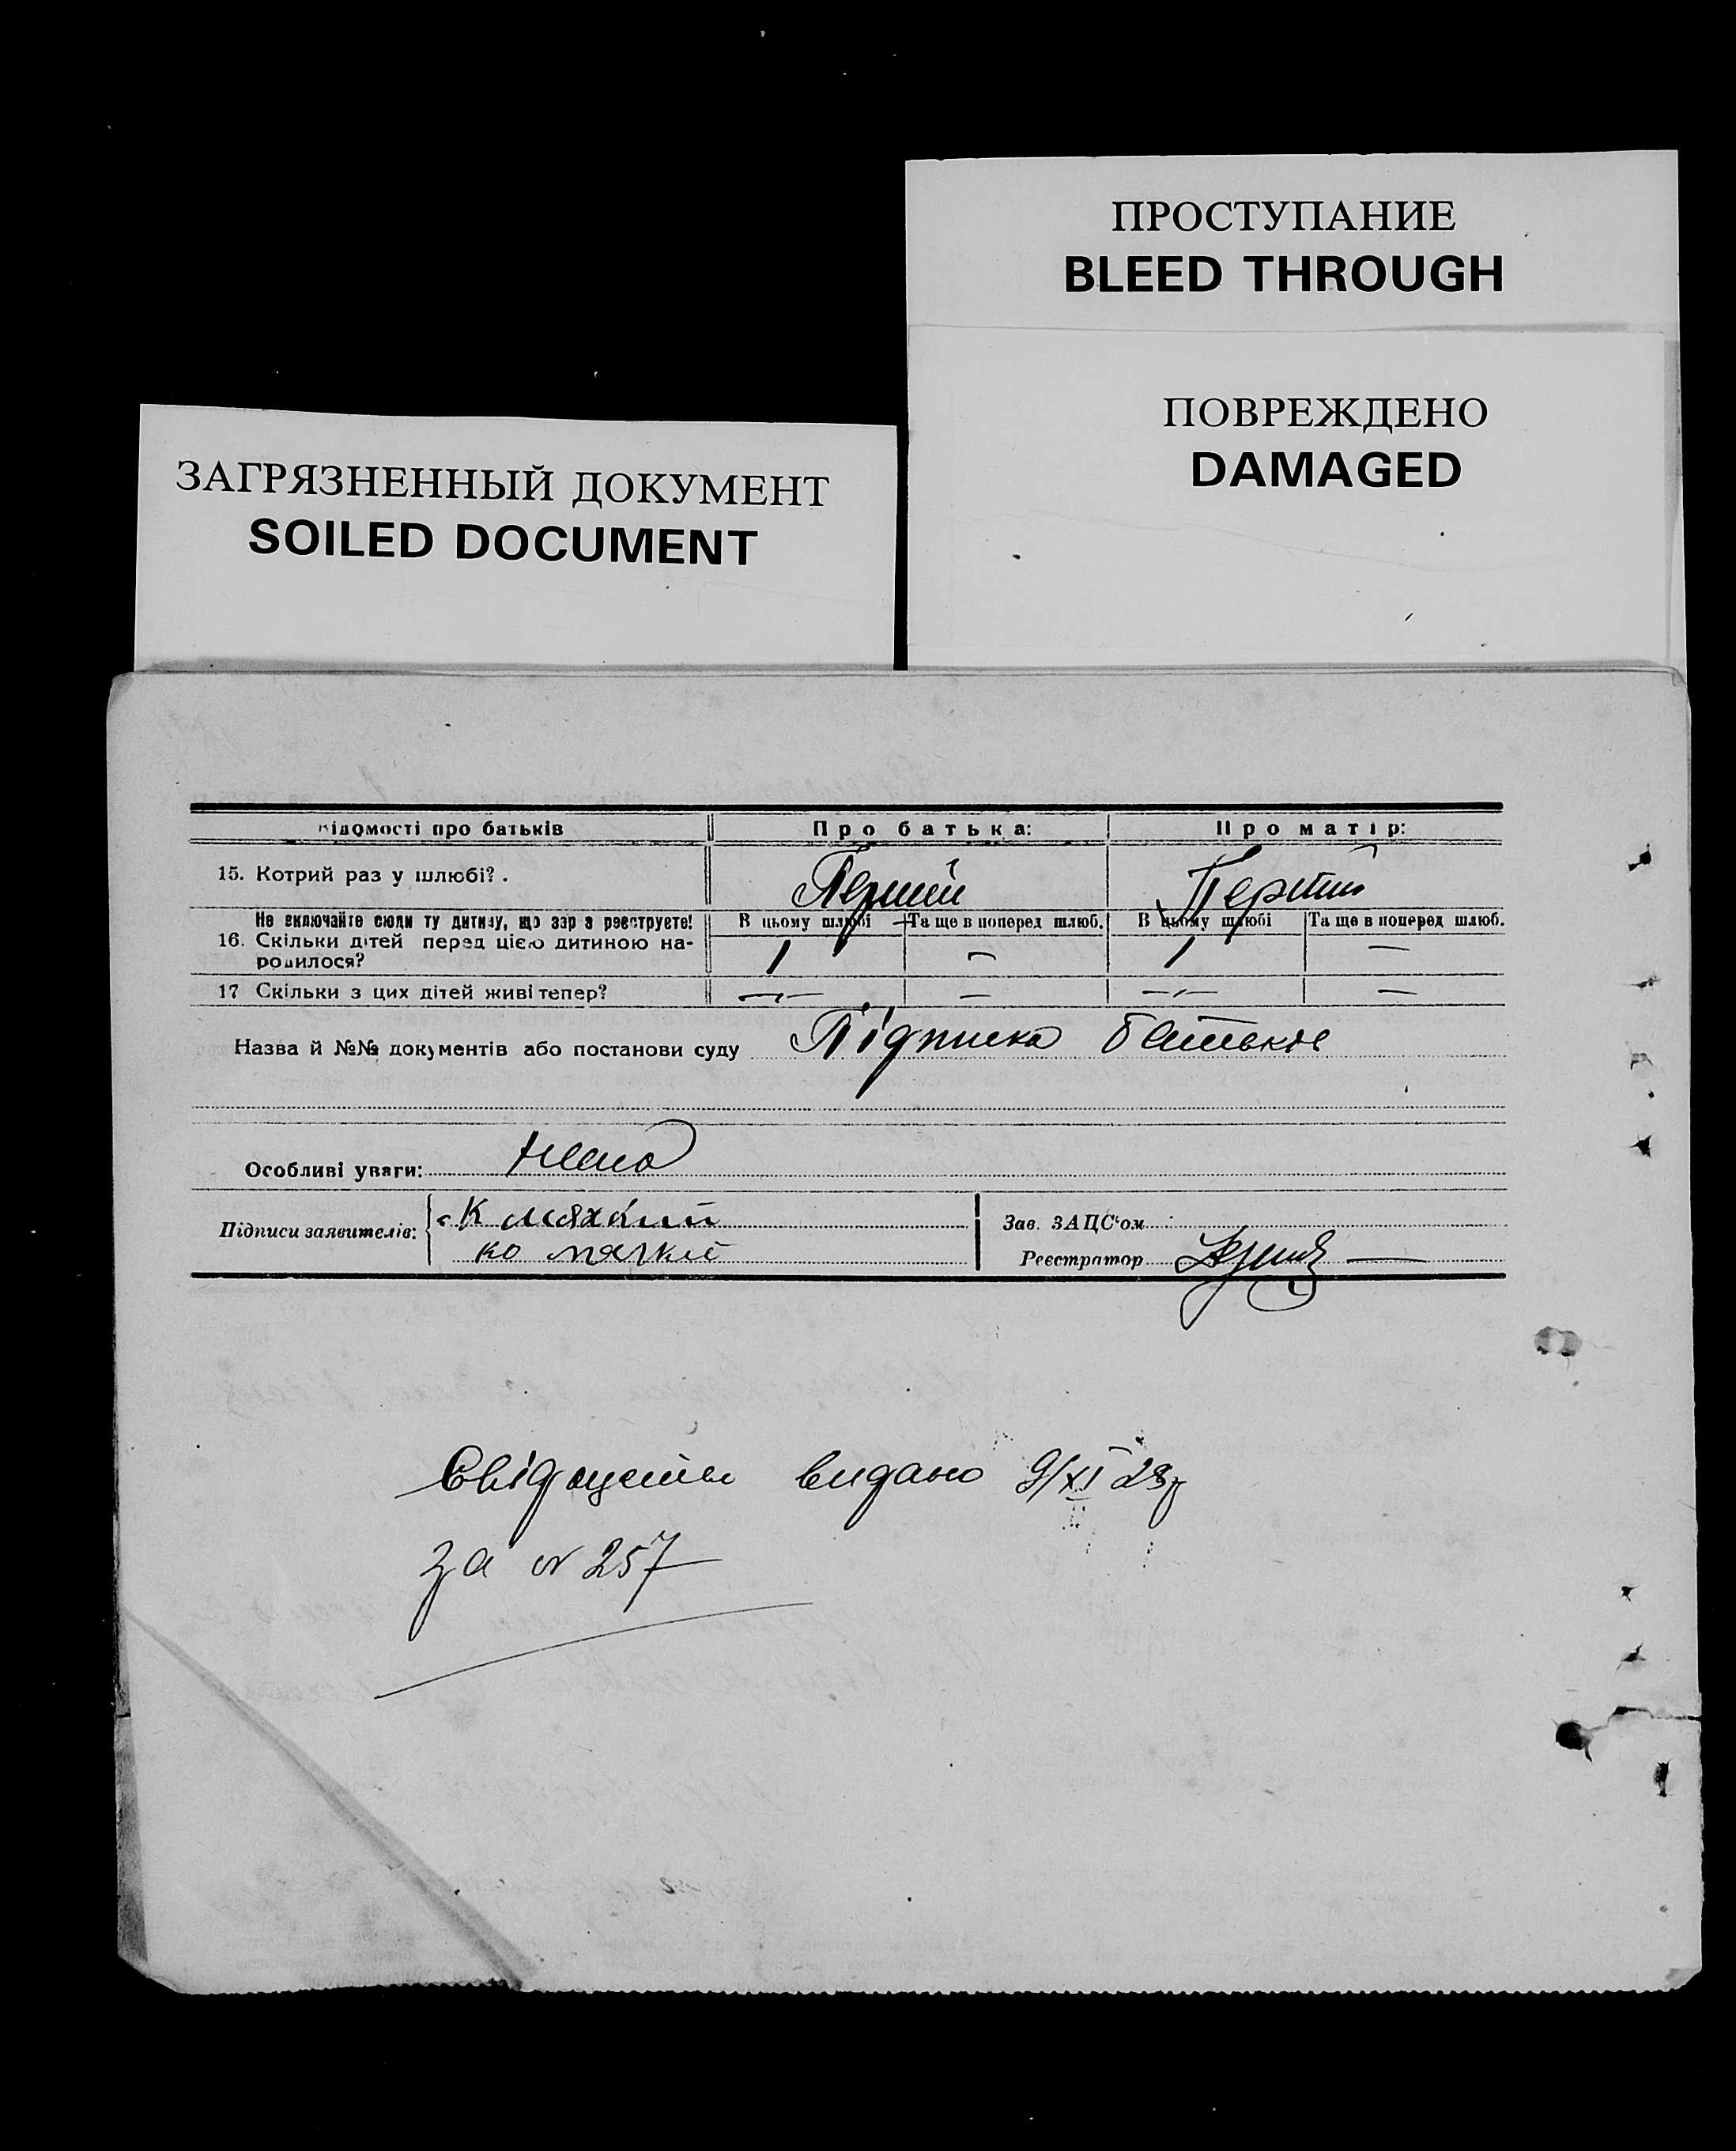 ПРОСТУПАНИЕ
BLEED THROUGH
ПОВРЕЖДЕНО
DAMAGED
ЗАГРЯЗНЕННЫЙ ДОКУМЕНТ
SOILED DOCUMENT
відомості про батьків Про батька: Про матір:
15. Котрий раз у шлюбі? . Перший Перший
Не включайте сюди ту дитину, що зараз реєструєте! В цьому шлюбі Та ще в поперед шлюб. В цьому шлюбі Та ще в поперед шлюб.
16. Скільки дітей перед цією дитиною на-
родилося? 1 — 1 —
17 Скільки з цих дітей живі тепер? —„— — —„— —
Назва й №№ документів або постанови суду Підписка батьков
Особливі уваги: нема
Підписи заявителів: К мяхкий
ко мягкий
Зав. ЗАЦС'ом
Реєстратор
Свідоцтво видано 9/XI 28р
за № 257